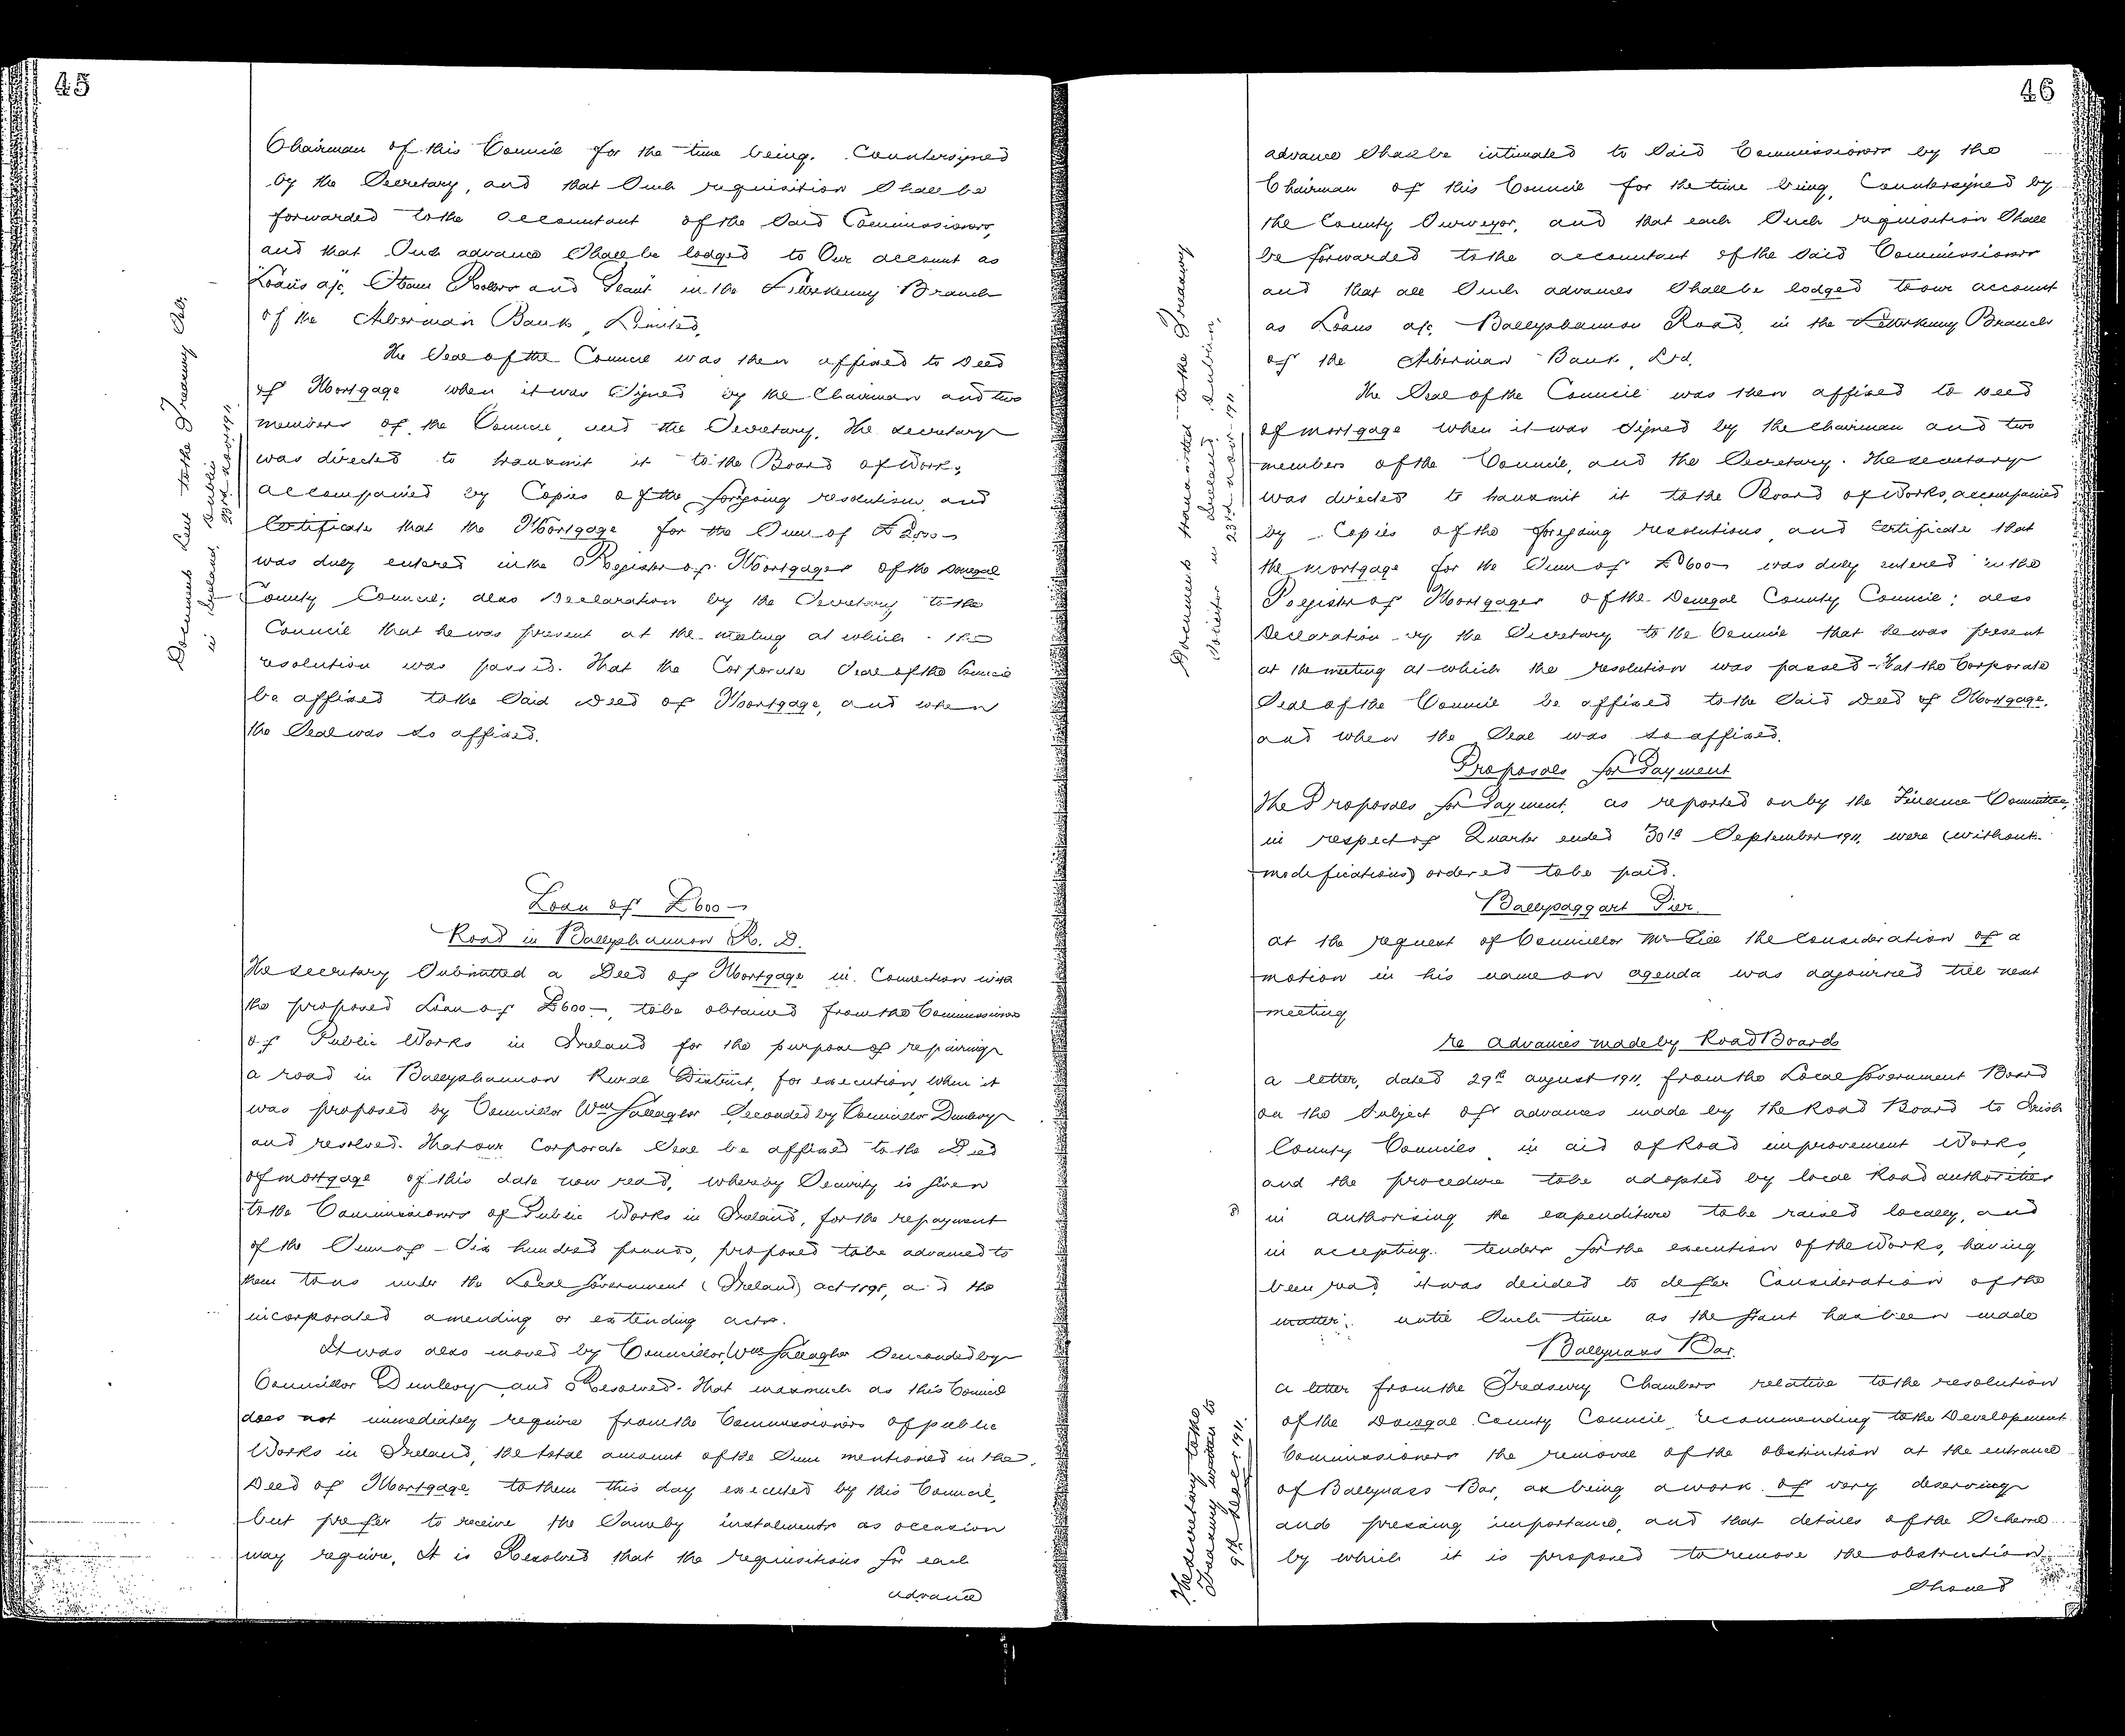 45
Chairman of this Council for the time being. Countersigned
by the Secretary, and that Such requisition Shall be
forwarded to the accountant of the Said Commissioners,
and that Such advance Shall be lodged to Our account as
"Loans a/c, Steam Rollers and Plant" in the Letterkenny Branch
of the Hibernian Bank, Limited.
The Seal of the Council was then affixed to Deed
of Mortgage when it was Signed by the Chairman and two
members of the Council and the Secretary. The secretary
was directed to transmit it to the Board of Works,
accompanied by Copies of the foregoing resolutions and
Certificate that the Mortgage for the Sum of £2500-
was duly entered in the Register of Mortgages of the Donegal
County Council; also Declaration by the Secretary to the
Council that he was present at the meeting at which the
resolution was passed. That the Corporate Seal of the Council
be affixed to the Said Deed of Mortgage, and when
the Seal was so affixed.
Documents Sent to the Treasury Solr.
in Ireland, Dublin
23rd Novr. 1911.
Loan of £600-
Road in Ballyshannon R. D.
The secretary Submitted a Deed of Mortgage in Connection with
the proposed Loan of £600-, to be obtained from the Commissioners
of Public Works in Ireland for the purpose of repairing
a road in Ballyshannon Rural District, for execution, when it
was proposed by Councillor Wm Gallagher Seconded by Councillor Dunlevy
and resolved. That our Corporate Seal be affixed to the Deed
of mortgage of this date now read, whereby Security is given
to the Commissioners of Public Works in Ireland, for the repayment
of the Sum of - Six hundred pounds, proposed to be advanced to
them to us under the Local Government (Ireland) act 1898, and the
incorporated amending or extending acts.
It was also moved by Councillor Wm Gallagher Seconded by
Councillor Dunlevy and Resolved- That inasmuch as this Council
does not immediately require from the Commissioners of public
Works in Ireland, the total amount of the Sum mentioned in the
Deed of Mortgage to them this day executed by this Council,
but prefer to receive the Same by instalments as occasion
may require, It is Resolved that the requisitions for each
advance
46
advance Shall be intimated to Said Commissioners by the
Chairman of this Council for the time being, Countersigned by
the County Surveyor, and that each Such requisition Shall
be forwarded to the accountant of the Said Commissioners
and that all Such advances Shall be lodged to our account
as Loans a/c. Ballyshannon Road, in the Letterkenny Branch
of the Hibernian Bank, Ltd.
The Seal of the Council was then affixed to Deed
of mortgage when it was Signed by the Chairman and two
members of the Council, and the Secretary. The secretary
was directed to transmit it to the Board of Works, accompanied
by Copies of the foregoing resolutions and Certificate that
the mortgage for the Sum of £600- was duly entered in the
Register of Mortgages of the Donegal County Council; also
Declaration by the Secretary to the Council that he was present
at the meeting at which the resolution was passed - That the Corporate
Seal of the Council be affixed to the Said Deed of Mortgage,
and when the Seal was so affixed.
Documents transmitted to the Treasury
Solicitor in Ireland. Dublin,
23rd Novr 1911
Proposals for Payment
The Proposals for Payment, as reported on by the Finance Committee,
in respect of Quarter ended 30th September 1911, were (without
modifications) ordered to be paid.
Ballysaggart Pier.
at the request of Councillor McGill the consideration of a
motion in his name on agenda was adjourned till next
meeting
re advances made by Road Boards
a letter, dated 29th august 1911, from the Local Government Board
on the Subject of advances made by the Road Board to Irish
County Councils in aid of Road improvement Works,
and the procedure to be adopted by local Road authorities
in authorising the expenditure to be raised locally, and
in accepting tenders for the execution of the Works, having
been read, it was decided to defer Consideration of the
matter, until Such time as the Grant has been made
Ballyness Bar.
a letter from the Treasury Chambers relative to the resolution
of the Donegal County Council recommending to the Development
Commissioners the removal of the obstruction at the entrance
of Ballyness Bar, as being a work of very deserving
and pressing importance, and that details of the Scheme
by which it is proposed to remove the obstruction
Should
The Secretary to the
Treasury written to
9th Decr. 1911.